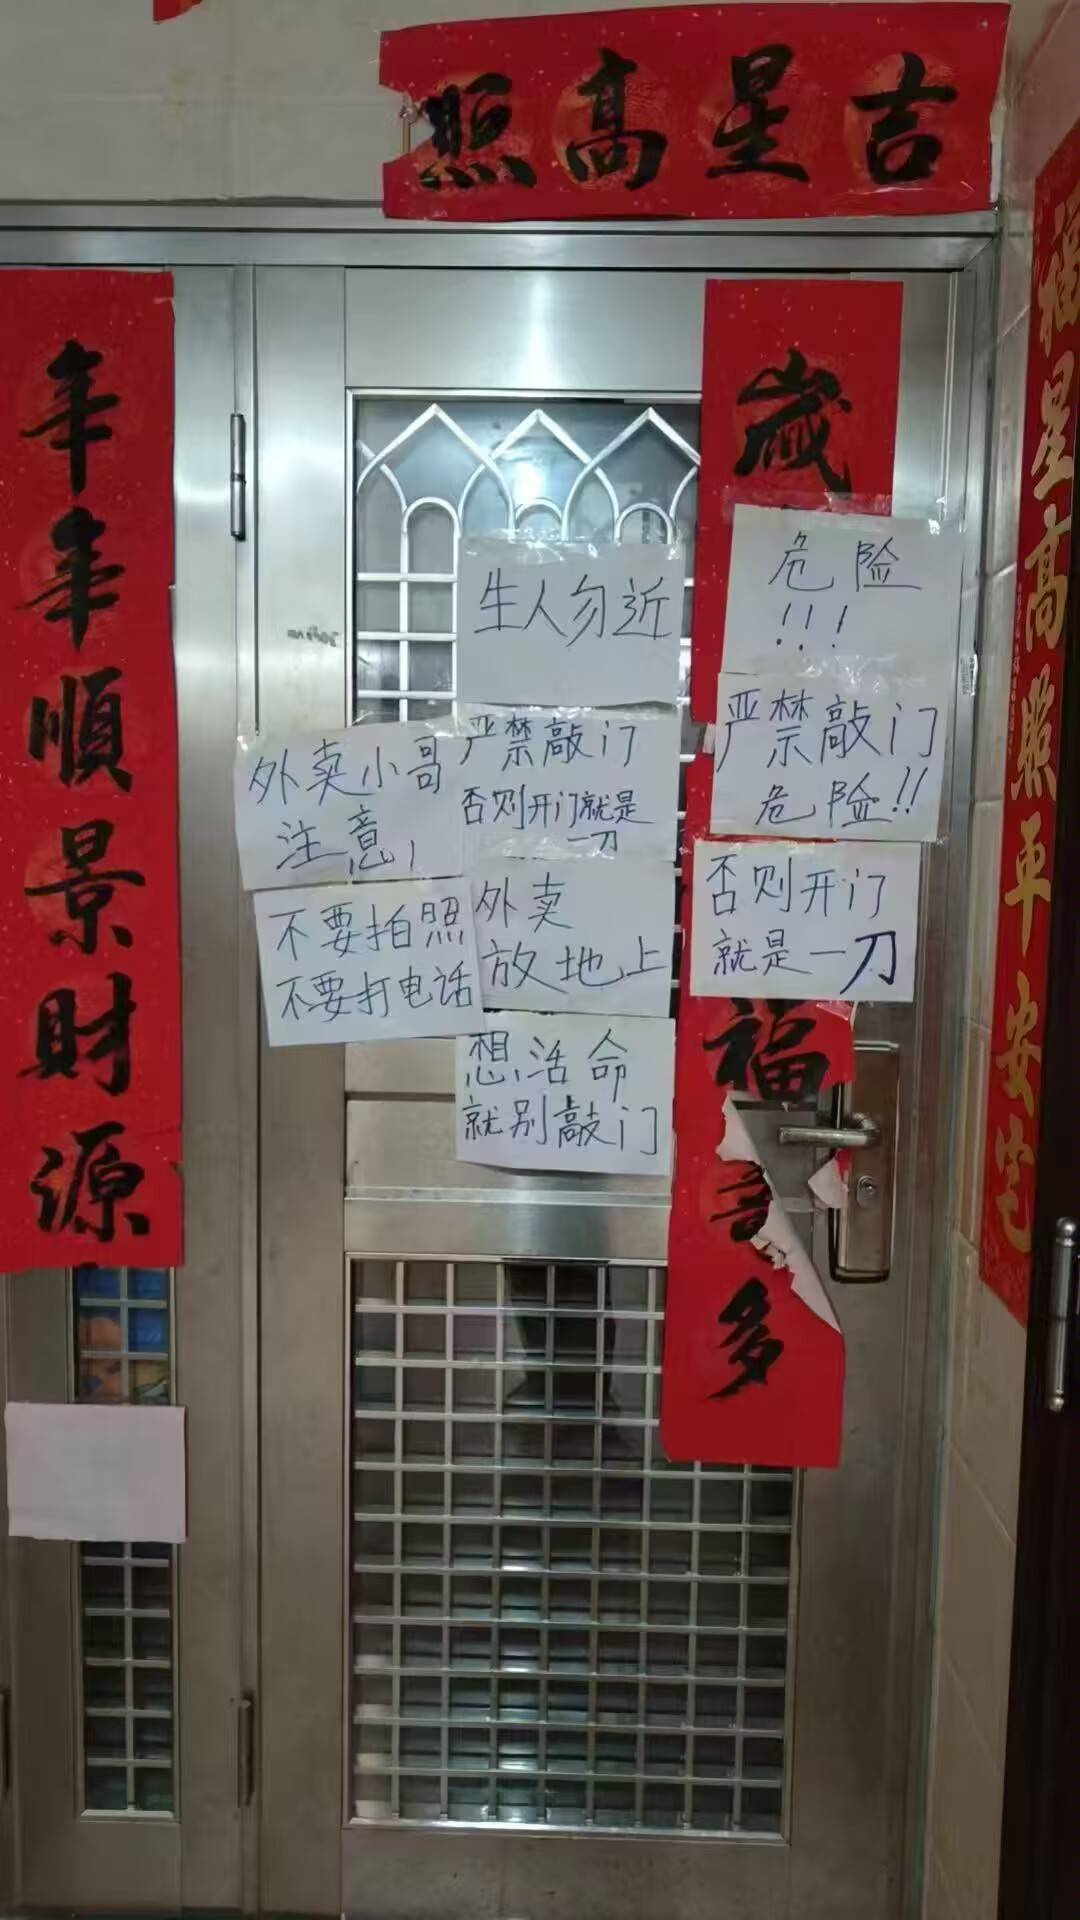 吉星高照
年年順景財源
歲
福
多
福星高照平安宅
生人勿近
危险
!!!
外卖小哥
注意,
严禁敲门
否则开门就是
一刀
严禁敲门
危险!!
不要拍照
不要打电话
外卖
放地上
否则开门
就是一刀
想活命
就别敲门